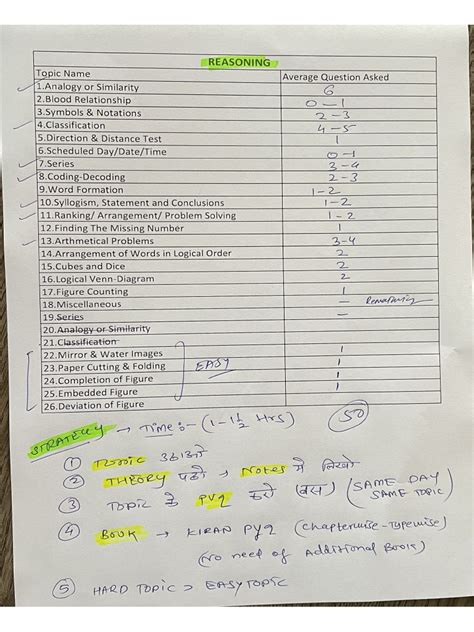 REASONING
Topic Name Average Question Asked
1.Analogy or Similarity 6
2.Blood Relationship 0-1
3.Symbols & Notations 2-3
4.Classification 4-5
5.Direction & Distance Test 1
6.Scheduled Day/Date/Time 0-1
7.Series 3-4
8.Coding-Decoding 2-3
9.Word Formation 1-2
10.Syllogism, Statement and Conclusions 1-2
11.Ranking/ Arrangement/ Problem Solving 1-2
12.Finding The Missing Number 1
13.Arthmetical Problems 3-4
14.Arrangement of Words in Logical Order 2
15.Cubes and Dice 2
16.Logical Venn-Diagram 2
17.Figure Counting 1
18.Miscellaneous — Remaining
19.Series —
20.Analogy or Similarity
21.Classification
22.Mirror & Water Images 1
23.Paper Cutting & Folding EASY 1
24.Completion of Figure 1
25.Embedded Figure 1
26.Deviation of Figure
50
STRATEGY → Time:- (1-1½ Hrs)
① TOPIC उठाओ
② THEORY पढो → Notes में लिखो
③ TOPIC के PYQ करो (बस) (SAME DAY SAME TOPIC)
④ BOOK → KIRAN PYQ (Chapterwise-Typewise)
(No need of Additional Book)
⑤ HARD TOPIC > EASY TOPIC